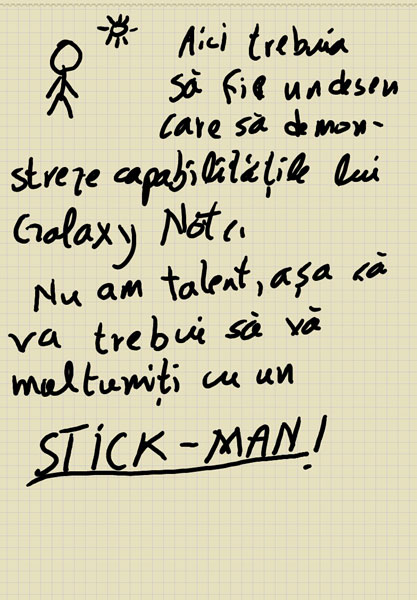 Aici trebuia
să fie un desen
care să demon-
streze capabilitățile lui
Galaxy Note.
Nu am talent, așa că
va trebui să vă
multumiți cu un
STICK-MAN!